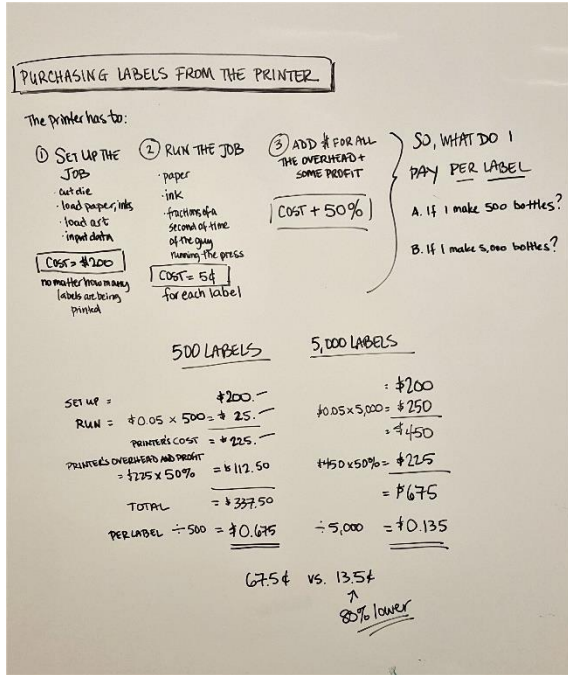 PURCHASING LABELS FROM THE PRINTER
The printer has to:
① SET UP THE
JOB
· cut die
· load paper, inks
· load art
· input data
COST = $200
no matter how many
labels are being
printed
② RUN THE JOB
· paper
· ink
· fractions of a
second of time
of the guy
running the press
COST = 5¢
for each label
③ ADD $ FOR ALL
THE OVERHEAD +
SOME PROFIT
COST + 50%
SO, WHAT DO I
PAY PER LABEL
A. If I make 500 bottles?
B. If I make 5,000 bottles?
500 LABELS
SET UP = $200.—
RUN = $0.05 x 500 = $ 25.—
PRINTER'S COST = $225.—
PRINTER'S OVERHEAD AND PROFIT
= $225 x 50% = $112.50
TOTAL = $337.50
PER LABEL ÷ 500 = $0.675
5,000 LABELS
= $200
$0.05 x 5,000 = $250
= $450
$450 x 50% = $225
= $675
÷ 5,000 = $0.135
67.5¢ vs. 13.5¢
↑
80% lower